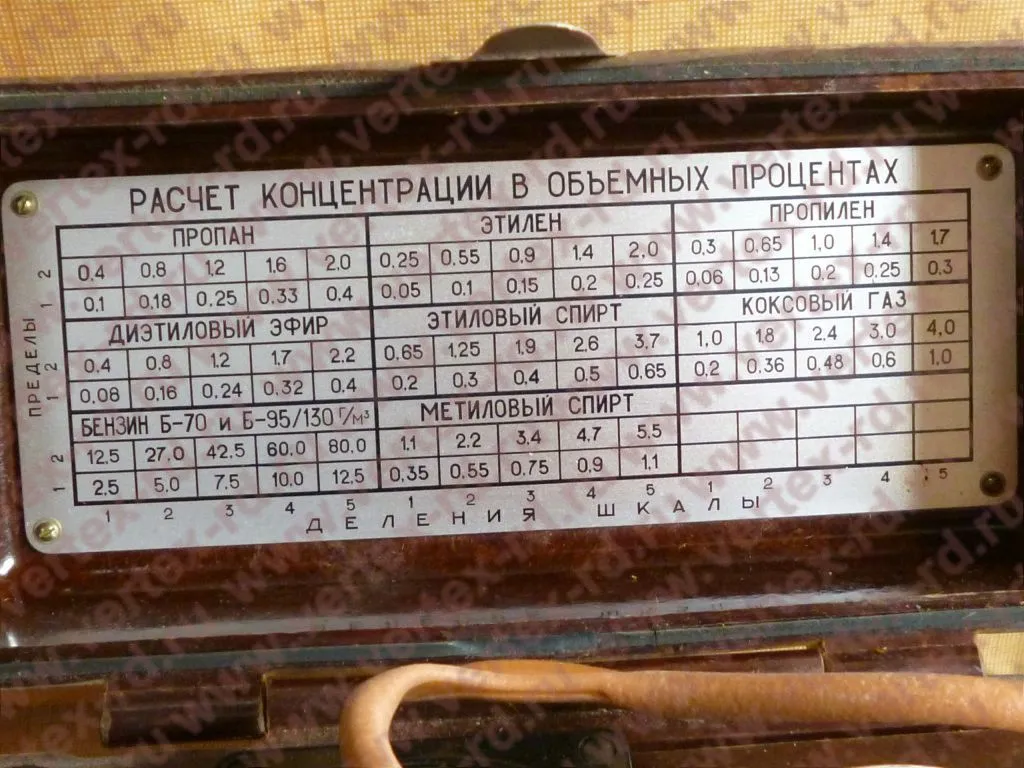 РАСЧЕТ КОНЦЕНТРАЦИИ В ОБЪЕМНЫХ ПРОЦЕНТАХ
ПРОПАН ЭТИЛЕН ПРОПИЛЕН
2 0.4 0.8 1.2 1.6 2.0 0.25 0.55 0.9 1.4 2.0 0.3 0.65 1.0 1.4 1.7
1 0.1 0.18 0.25 0.33 0.4 0.05 0.1 0.15 0.2 0.25 0.06 0.13 0.2 0.25 0.3
ПРЕДЕЛЫ
ДИЭТИЛОВЫЙ ЭФИР ЭТИЛОВЫЙ СПИРТ КОКСОВЫЙ ГАЗ
2 0.4 0.8 1.2 1.7 2.2 0.65 1.25 1.9 2.6 3.7 1.0 1.8 2.4 3.0 4.0
1 0.08 0.16 0.24 0.32 0.4 0.2 0.3 0.4 0.5 0.65 0.2 0.36 0.48 0.6 1.0
БЕНЗИН Б-70 и Б-95/130 Г/м³ МЕТИЛОВЫЙ СПИРТ
2 12.5 27.0 42.5 60.0 80.0 1.1 2.2 3.4 4.7 5.5
1 2.5 5.0 7.5 10.0 12.5 0.35 0.55 0.75 0.9 1.1
1 2 3 4 5 1 2 3 4 5 1 2 3 4 5
ДЕЛЕНИЯ ШКАЛЫ
www.vertex-rd.ru